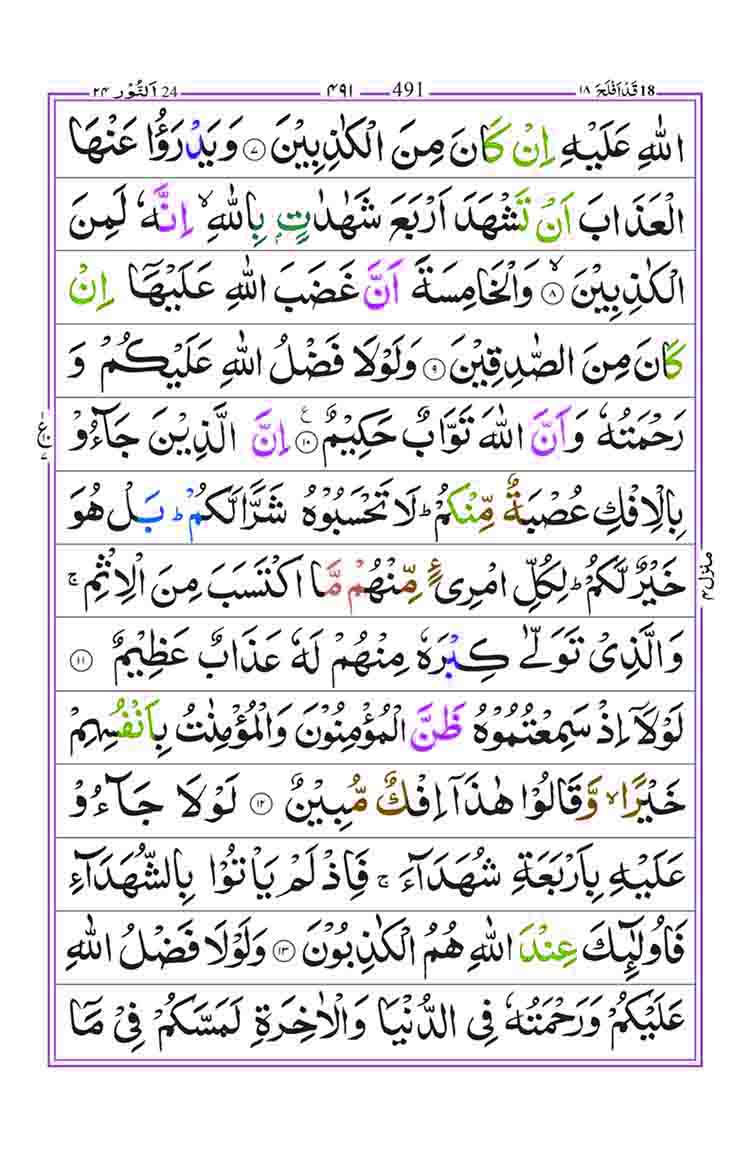 18 قَدْ اَفْلَحَ ١٨ 491 ٤٩١ 24 اَلنُّوْر ٢٤
اللّٰهِ عَلَيْهِ اِنْ كَانَ مِنَ الْكٰذِبِيْنَ ۝٧ وَيَدْرَؤُا عَنْهَا
الْعَذَابَ اَنْ تَشْهَدَ اَرْبَعَ شَهٰدٰتٍۭ بِاللّٰهِ ۙ اِنَّهٗ لَمِنَ
الْكٰذِبِيْنَ ۝٨ ۙ وَالْخَامِسَةَ اَنَّ غَضَبَ اللّٰهِ عَلَيْهَاۤ اِنْ
كَانَ مِنَ الصّٰدِقِيْنَ ۝٩ وَلَوْلَا فَضْلُ اللّٰهِ عَلَيْكُمْ وَ
رَحْمَتُهٗ وَاَنَّ اللّٰهَ تَوَّابٌ حَكِيْمٌ ۝١٠ ع اِنَّ الَّذِيْنَ جَآءُوْ
بِالْاِفْكِ عُصْبَةٌ مِّنْكُمْ ؕ لَا تَحْسَبُوْهُ شَرًّا لَّكُمْ ؕ بَلْ هُوَ
خَيْرٌ لَّكُمْ ؕ لِكُلِّ امْرِئٍ مِّنْهُمْ مَّا اكْتَسَبَ مِنَ الْاِثْمِ ۚ
وَالَّذِيْ تَوَلّٰى كِبْرَهٗ مِنْهُمْ لَهٗ عَذَابٌ عَظِيْمٌ ۝١١
لَوْلَاۤ اِذْ سَمِعْتُمُوْهُ ظَنَّ الْمُؤْمِنُوْنَ وَالْمُؤْمِنٰتُ بِاَنْفُسِهِمْ
خَيْرًا ۙ وَّقَالُوْا هٰذَاۤ اِفْكٌ مُّبِيْنٌ ۝١٢ لَوْلَا جَآءُوْ
عَلَيْهِ بِاَرْبَعَةِ شُهَدَآءَ ۚ فَاِذْ لَمْ يَاْتُوْا بِالشُّهَدَآءِ
فَاُولٰٓئِكَ عِنْدَ اللّٰهِ هُمُ الْكٰذِبُوْنَ ۝١٣ وَلَوْلَا فَضْلُ اللّٰهِ
عَلَيْكُمْ وَرَحْمَتُهٗ فِي الدُّنْيَا وَالْاٰخِرَةِ لَمَسَّكُمْ فِيْ مَاۤ
منزل ٤